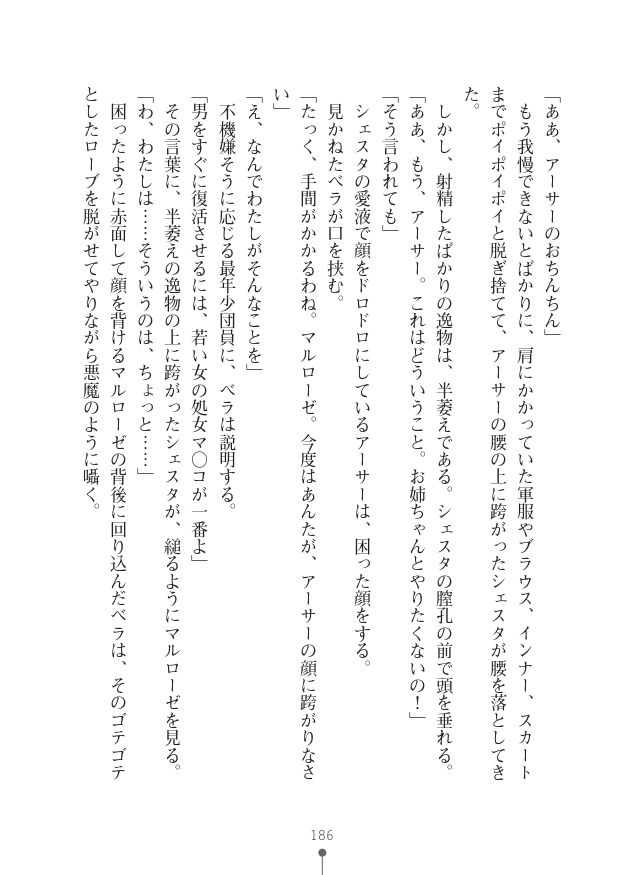 「ああ、アーサーのおちんちん」
もう我慢できないとばかりに、肩にかかっていた軍服やブラウス、インナー、スカート
までポイポイポイと脱ぎ捨てて、アーサーの腰の上に跨がったシェスタが腰を落としてき
た。
しかし、射精したばかりの逸物は、半萎えである。シェスタの膣孔の前で頭を垂れる。
「ああ、もう、アーサー。これはどういうこと。お姉ちゃんとやりたくないの！」
「そう言われても」
シェスタの愛液で顔をドロドロにしているアーサーは、困った顔をする。
見かねたベラが口を挟む。
「たっく、手間がかかるわね。マルローゼ。今度はあんたが、アーサーの顔に跨がりなさ
い」
「え、なんでわたしがそんなことを」
不機嫌そうに応じる最年少団員に、ベラは説明する。
「男をすぐに復活させるには、若い女の処女マ〇コが一番よ」
その言葉に、半萎えの逸物の上に跨がったシェスタが、縋るようにマルローゼを見る。
「わ、わたしは……そういうのは、ちょっと……」
困ったように赤面して顔を背けるマルローゼの背後に回り込んだベラは、そのゴテゴテ
としたローブを脱がせてやりながら悪魔のように囁く。
186